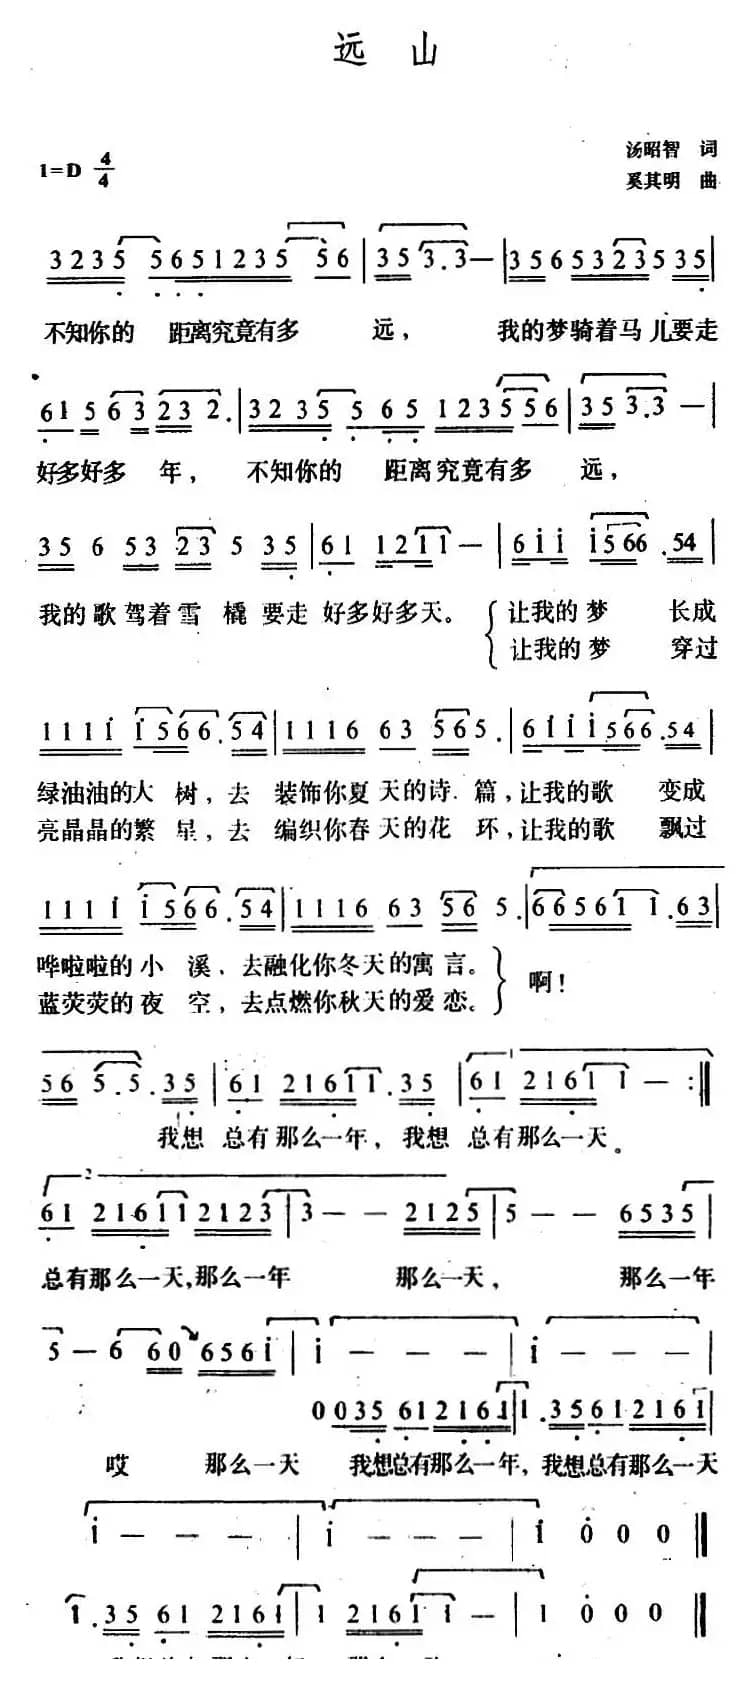 远 山
1=D 4/4
汤昭智 词
奚其明 曲
3235 5651235 56 | 35 3.3 — | 35653523535 |
不知你的 距离究竟有多 远， 我的梦骑着马儿要走
61 5 63 23 2. | 3235 5 65 123556 | 35 3.3 — |
好多好多 年， 不知你的 距离究竟有多 远，
35 6 53 23 5 35 | 61 1211 — | 6ii i566.54 |
我的歌驾着雪 橇 要走 好多好多天。 让我的梦 长成
让我的梦 穿过
111i i566.54 | 1116 63 565. | 6iiii566.54 |
绿油油的大 树，去 装饰你夏 天的诗篇，让我的歌 变成
亮晶晶的繁 星，去 编织你春 天的花 环，让我的歌 飘过
111i i566.54 | 1116 63 56 5. | 665611 1.63 |
哗啦啦的小 溪，去融化你冬天的寓言。
蓝荧荧的夜 空，去点燃你秋天的爱恋。 啊！
56 5.5.35 | 61 21611.35 | 61 21611 — :||
我想 总有那么一年，我想 总有那么一天。
2
61 216112123 | 3 — — 2125 | 5 — — 6535 |
总有那么一天，那么一年 那么一天， 那么一年
5 — 6 60 656i | i — — — | i — — —
0035 612161 | 1.35612161 |
哎 那么一天 我想总有那么一年，我想总有那么一天
i — — — | i — — — | i 0 0 0 ||
1.35 61 2161 | 1 21611 — | 1 0 0 0 ||